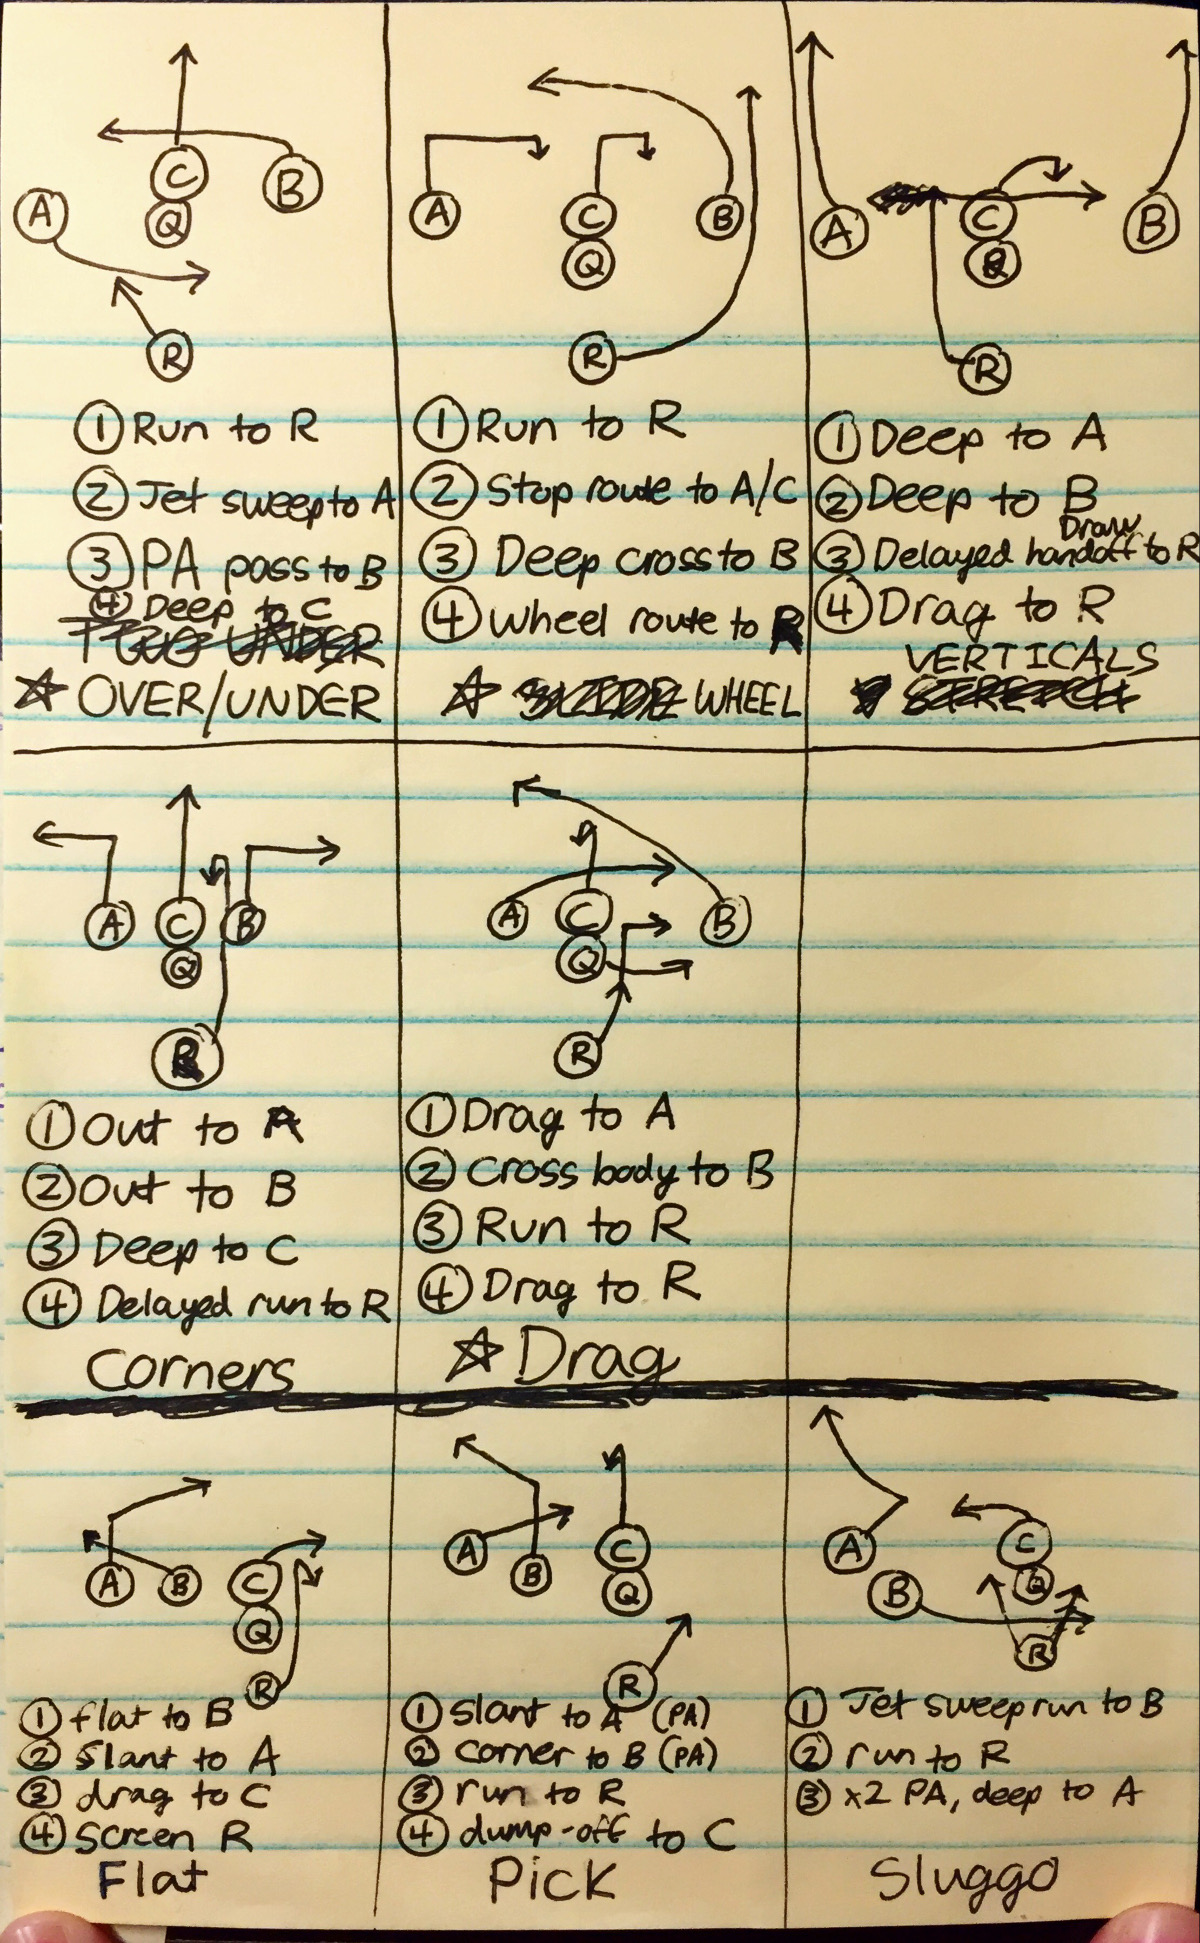 C
B
A
Q
R
① Run to R
② Jet sweep to A
③ PA pass to B
④ Deep to C
☆ OVER/UNDER
A
C
B
Q
R
① Run to R
② Stop route to A/C
③ Deep cross to B
④ Wheel route to R
☆ WHEEL
A
C
B
Q
R
① Deep to A
② Deep to B
Draw
③ Delayed handoff to R
④ Drag to R
VERTICALS
A
C
B
Q
R
① Out to A
② Out to B
③ Deep to C
④ Delayed run to R
Corners
A
C
B
Q
R
① Drag to A
② Cross body to B
③ Run to R
④ Drag to R
☆ Drag
A
B
C
Q
R
① flat to B
② slant to A
③ drag to C
④ screen R
Flat
A
B
C
Q
R
① slant to A (PA)
② corner to B (PA)
③ run to R
④ dump-off to C
Pick
A
C
B
Q
R
① Jet sweep run to B
② run to R
③ x2 PA, deep to A
Sluggo